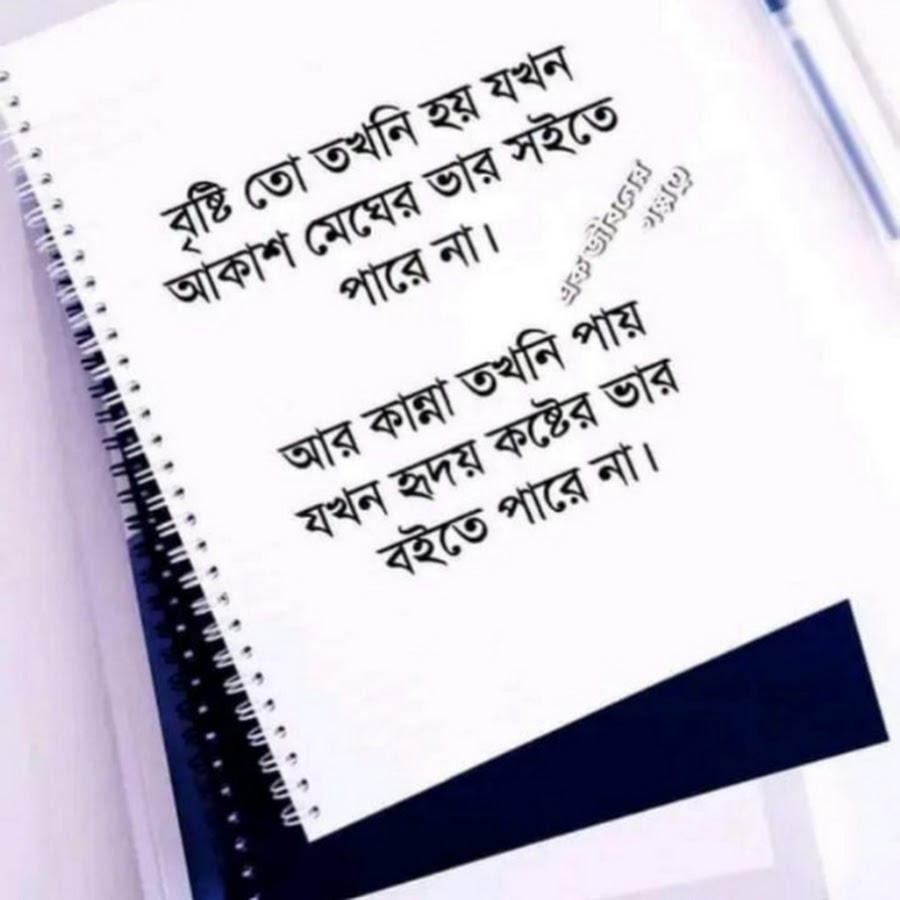 বৃষ্টি তো তখনি হয় যখন
আকাশ মেঘের ভার সইতে
পারে না।
এক জীবনের
গল্প
আর কান্না তখনি পায়
যখন হৃদয় কষ্টের ভার
বইতে পারে না।